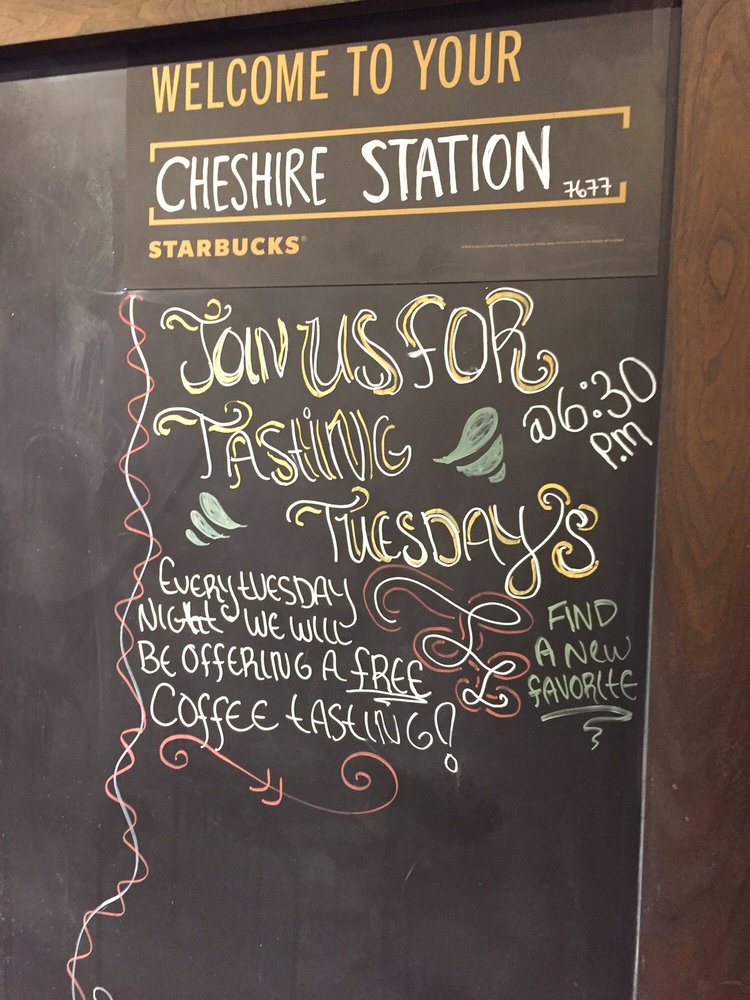 WELCOME TO YOUR
CHESHIRE STATION 7677
STARBUCKS®
JOIN US FOR
@ 6:30
P.M
TASTING
TUESDAY'S
EVERY TUESDAY
NIGHT WE WILL
BE OFFERING A FREE
COFFEE TASTING!
FIND
A NEW
FAVORITE